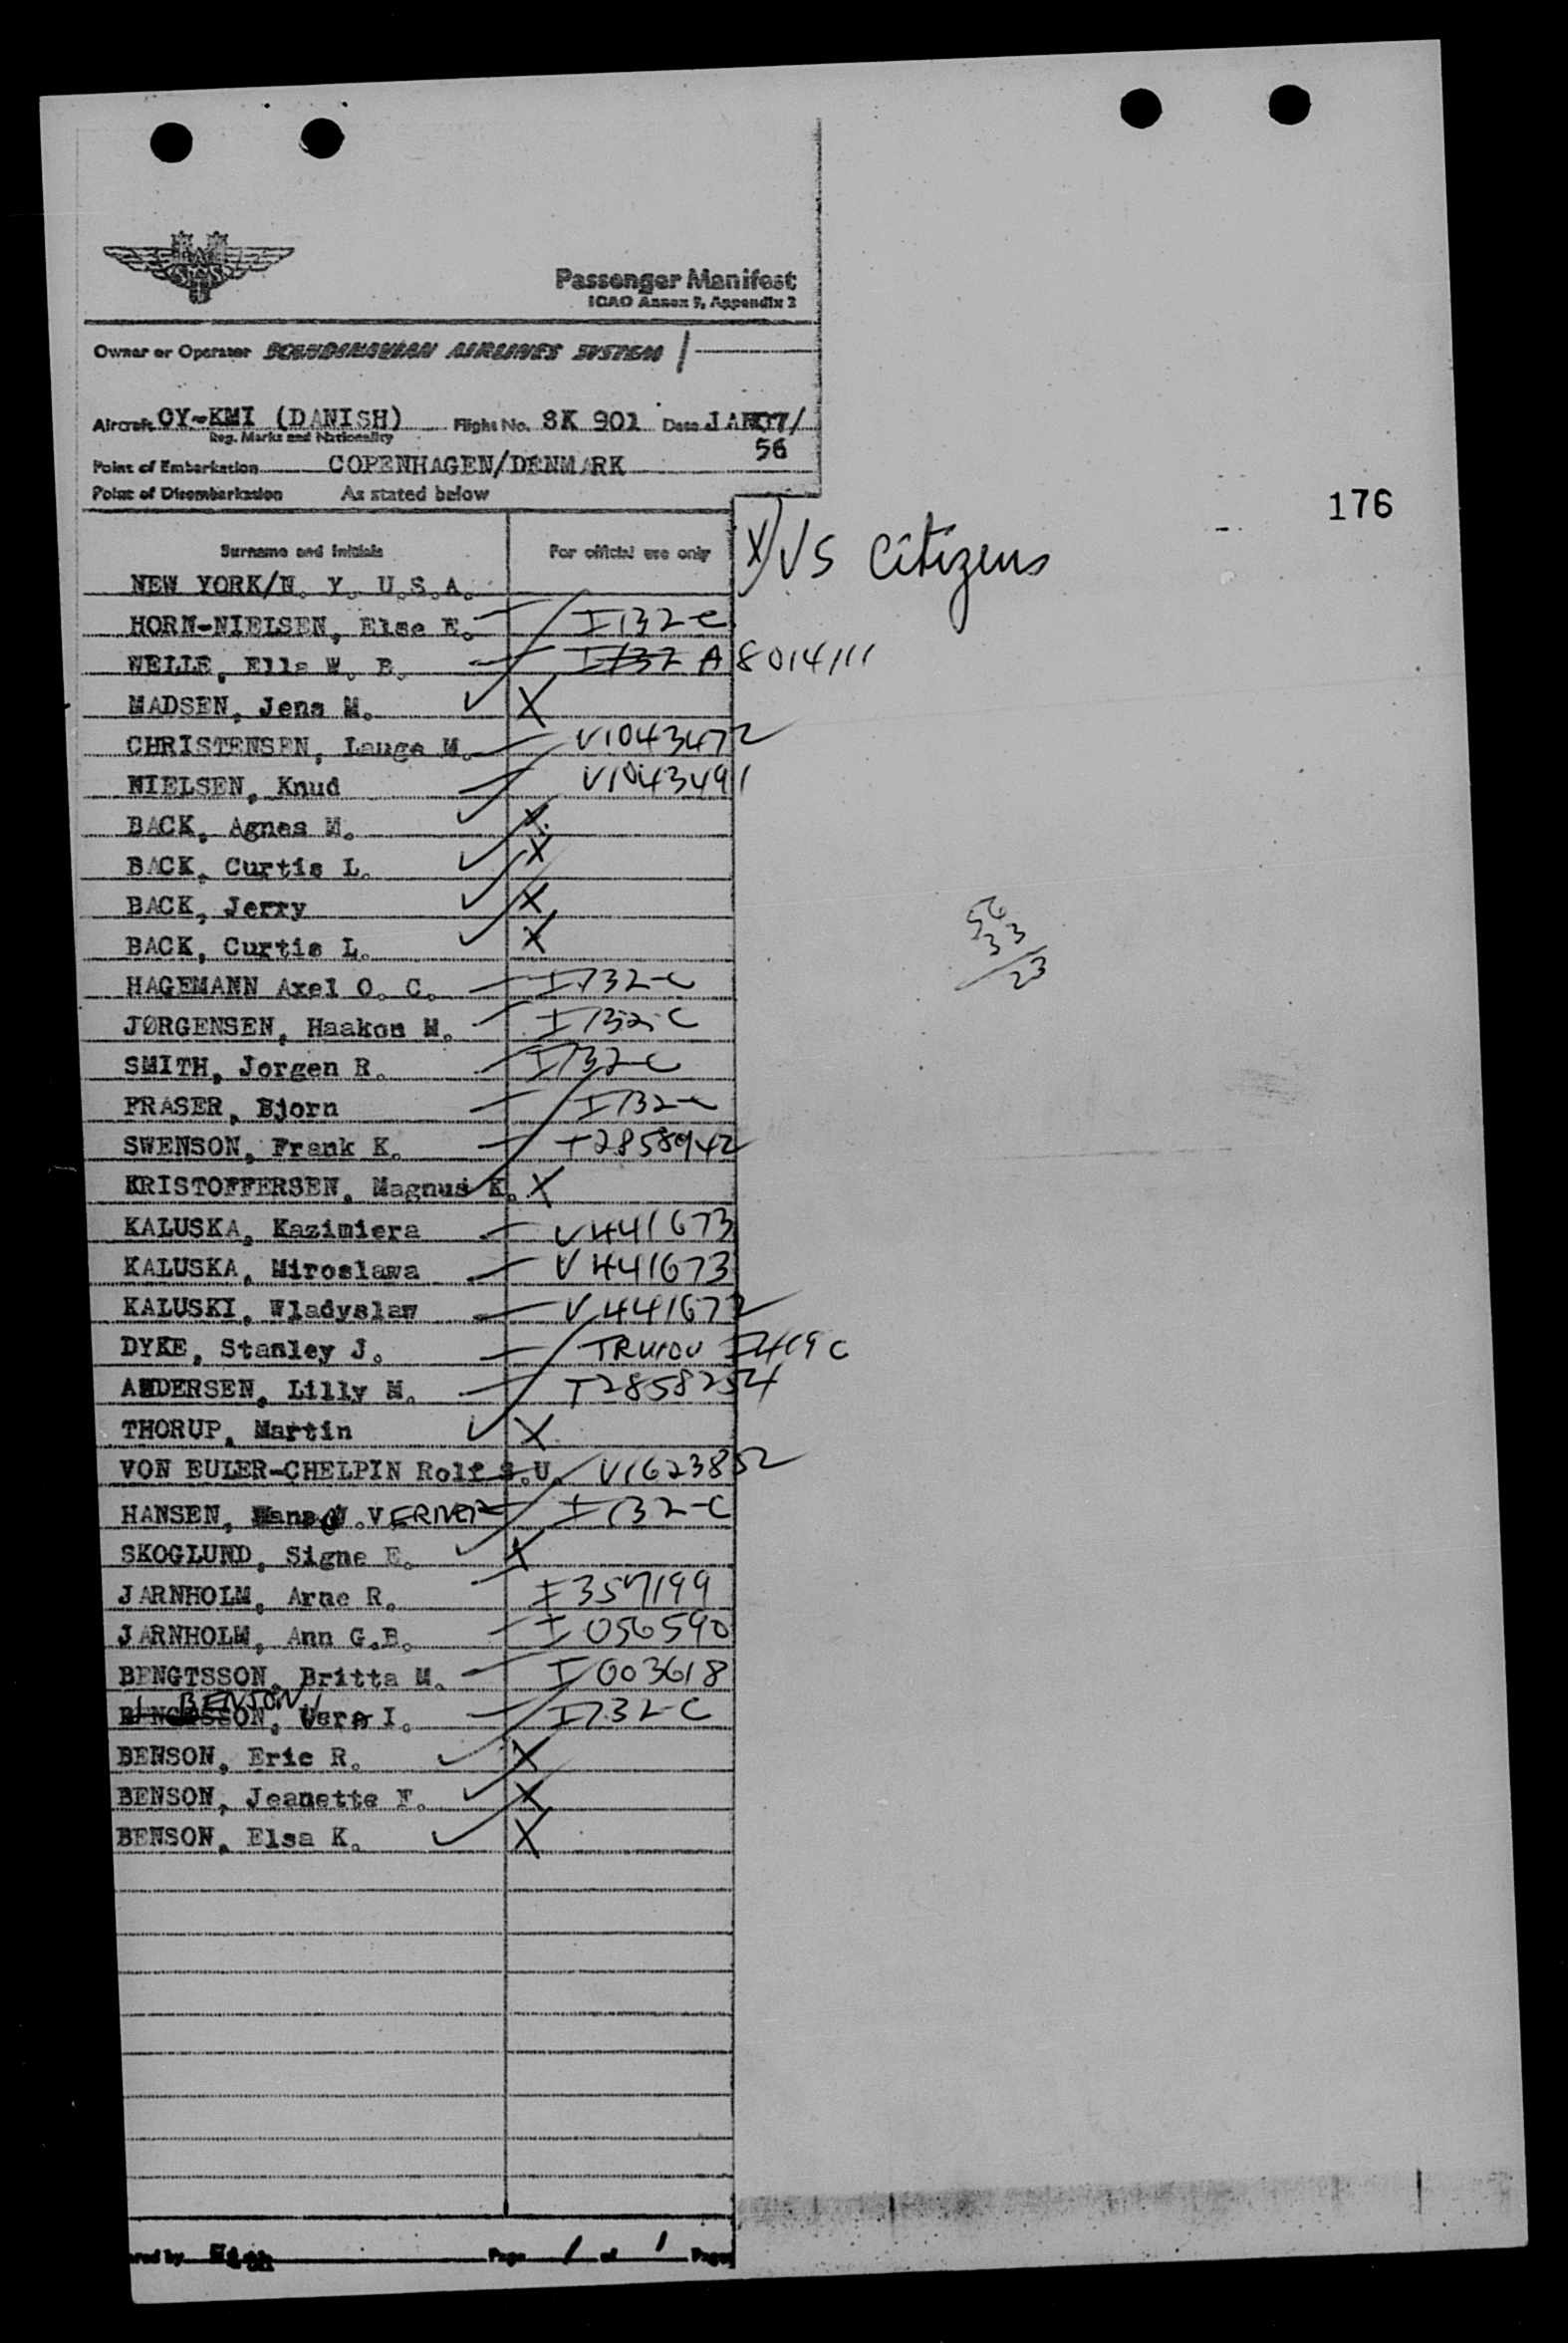 SAS
Passenger Manifest
ICAO Annex 9, Appendix 2
Owner or Operator SCANDINAVIAN AIRLINES SYSTEM
Aircraft OY-KMI (DANISH) Flight No. SK 901 Date JAN 07/
Reg. Marks and Nationality
56
Point of Embarkation COPENHAGEN/DENMARK
Point of Disembarkation As stated below
176
Surname and Initials For official use only X) US citizens
NEW YORK/N. Y. U.S.A.
HORN-NIELSEN, Else E. I132-C
WELLE, Ella W. B. I132 A8014111
MADSEN, Jens M. X
CHRISTENSEN, Lauge M. V1043472
NIELSEN, Knud V1043491
BACK, Agnes M. X
BACK, Curtis L. X
BACK, Jerry X
BACK, Curtis L. X
56
33
23
HAGEMANN Axel O. C. I132-C
JØRGENSEN, Haakon M. I132-C
SMITH, Jorgen R. I132-C
FRASER, Bjorn I132-C
SWENSON, Frank K. T2858942
KRISTOFFERSEN, Magnus K. X
KALUSKA, Kazimiera V441673
KALUSKA, Miroslawa V441673
KALUSKI, Wladyslaw V441672
DYKE, Stanley J. I419C
ANDERSEN, Lilly M. T2858254
THORUP, Martin X
VON EULER-CHELPIN Rolf S.U. V1623852
HANSEN, I132-C
SKOGLUND, Signe E. X
JARNHOLM, Arne R. I357199
JARNHOLM, Ann G.B. I056590
BENGTSSON, Britta M. I003618
BENSON
Vera I. I132-C
BENSON, Eric R. X
BENSON, Jeanette F. X
BENSON, Elsa K. X
Page 1 of 1 Pages